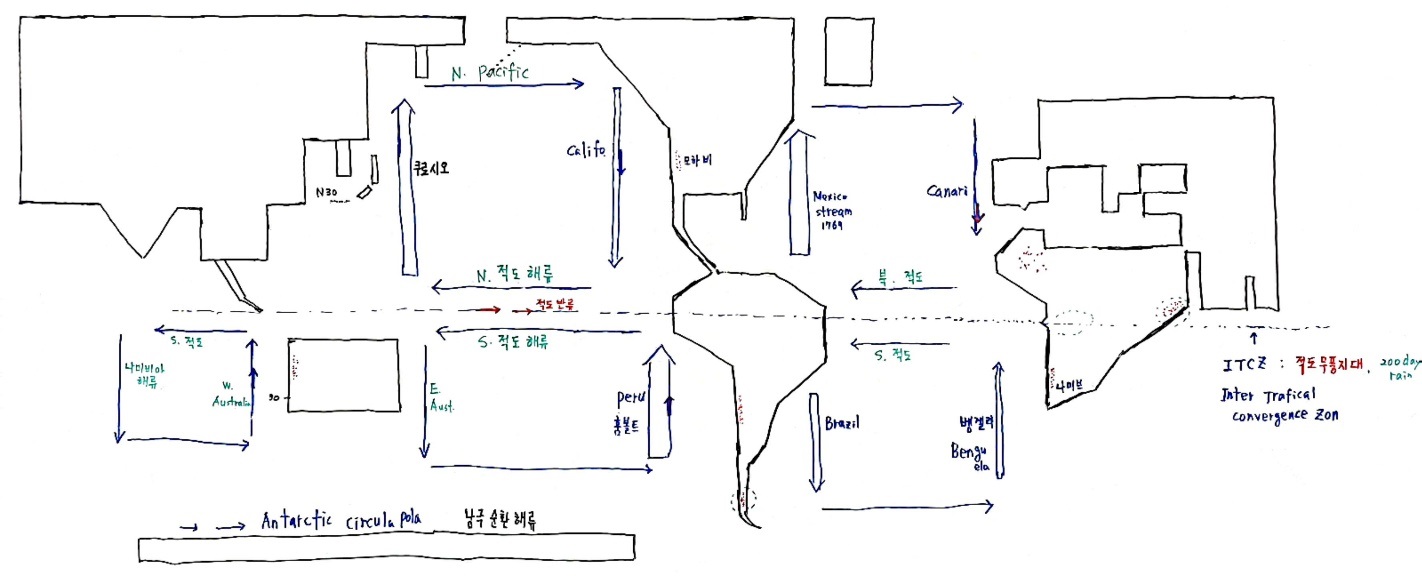 N. Pacific
쿠로시오
N30
Califo
모하비
Mexico
stream
1769
Canari
N. 적도 해류
적도 반류
S. 적도 해류
북. 적도
S. 적도
S. 적도
나미비아
해류
W.
Australia
30
E.
Aust.
peru
훔볼트
Brazil
벵겔라
Bengu
ela
나미브
ITCZ : 적도무풍지대, 200day
rain
Inter Trafical
convergence Zon
Antarctic circula pola 남극 순환 해류